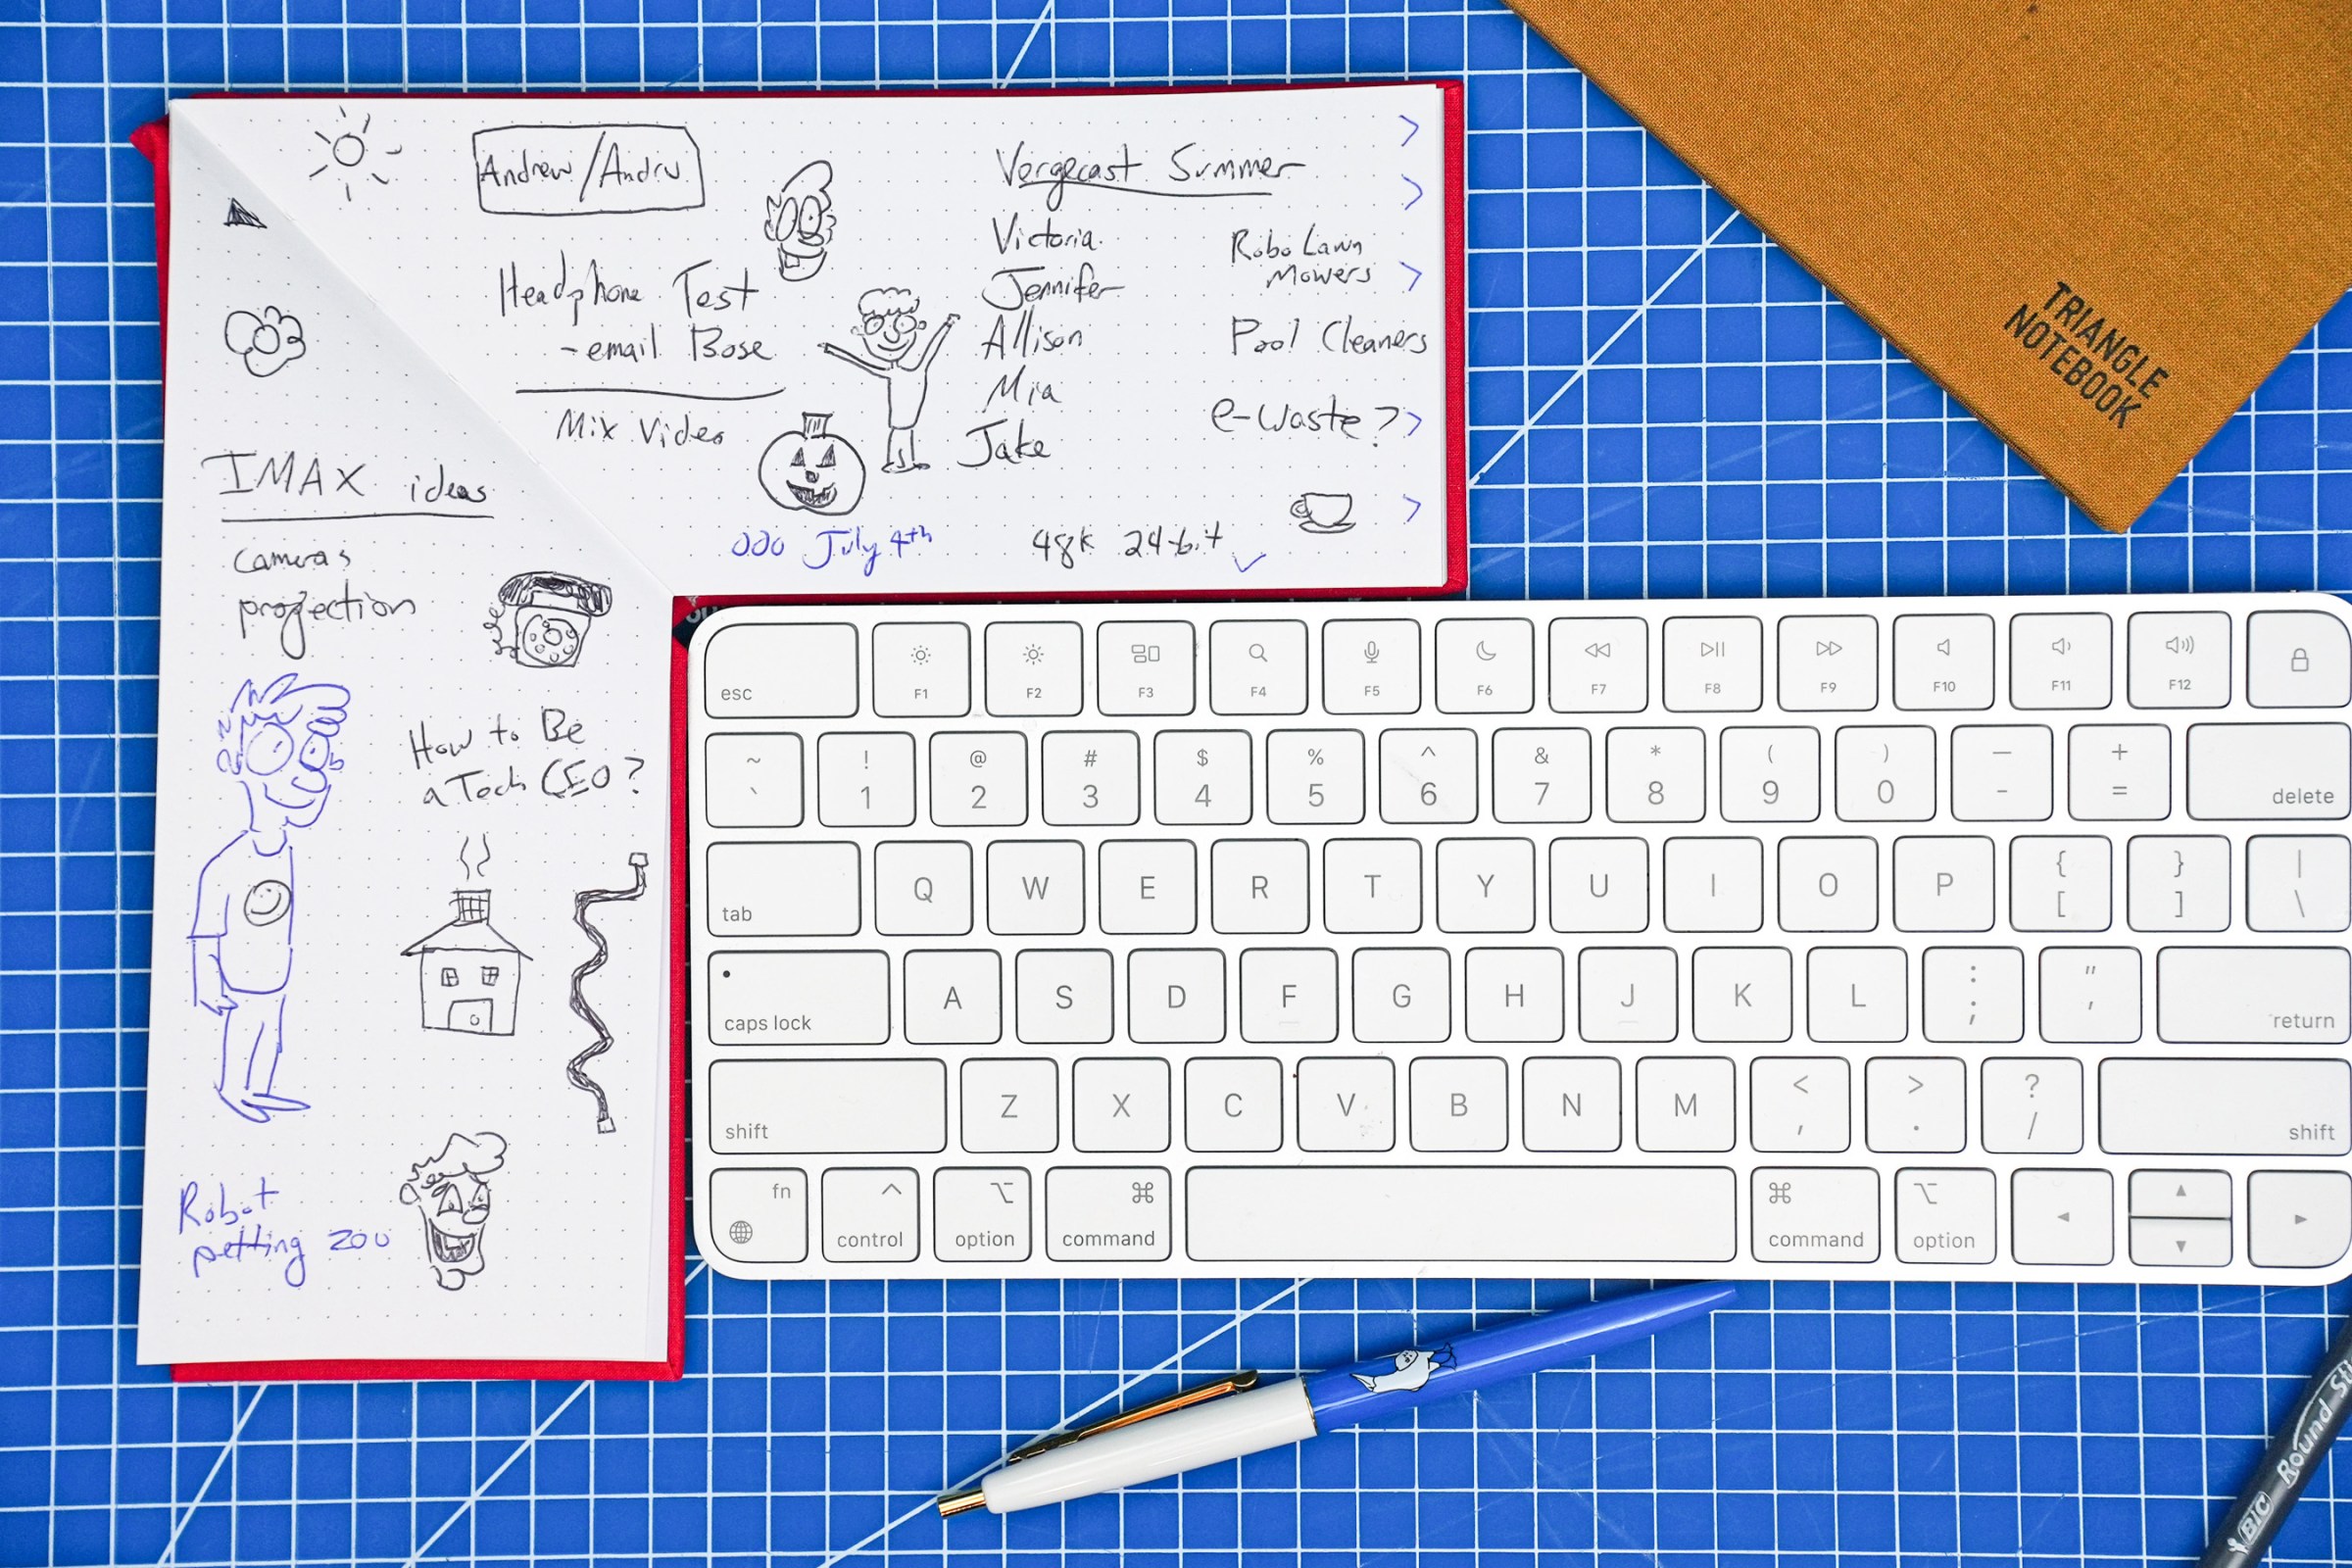 Andrew/Andru
Headphone Test
-email Bose
Mix Video
Vergecast Summer
Victoria
Jennifer
Allison
Mia
Jake
Robo Lawn
Mowers
Pool Cleaners
e-waste?
OOO July 4th
48k 24-bit
IMAX ideas
cameras
projection
How to Be
a Tech CEO?
Robot
petting zoo
TRIANGLE
NOTEBOOK
esc F1 F2 F3 F4 F5 F6 F7 F8 F9 F10 F11 F12
~ ! @ # $ % ^ & * ( ) — +
` 1 2 3 4 5 6 7 8 9 0 - = delete
tab Q W E R T Y U I O P { [ } ] | \
caps lock A S D F G H J K L : ; " ' return
shift Z X C V B N M < , > . ? / shift
fn control option command command option
BIC Round